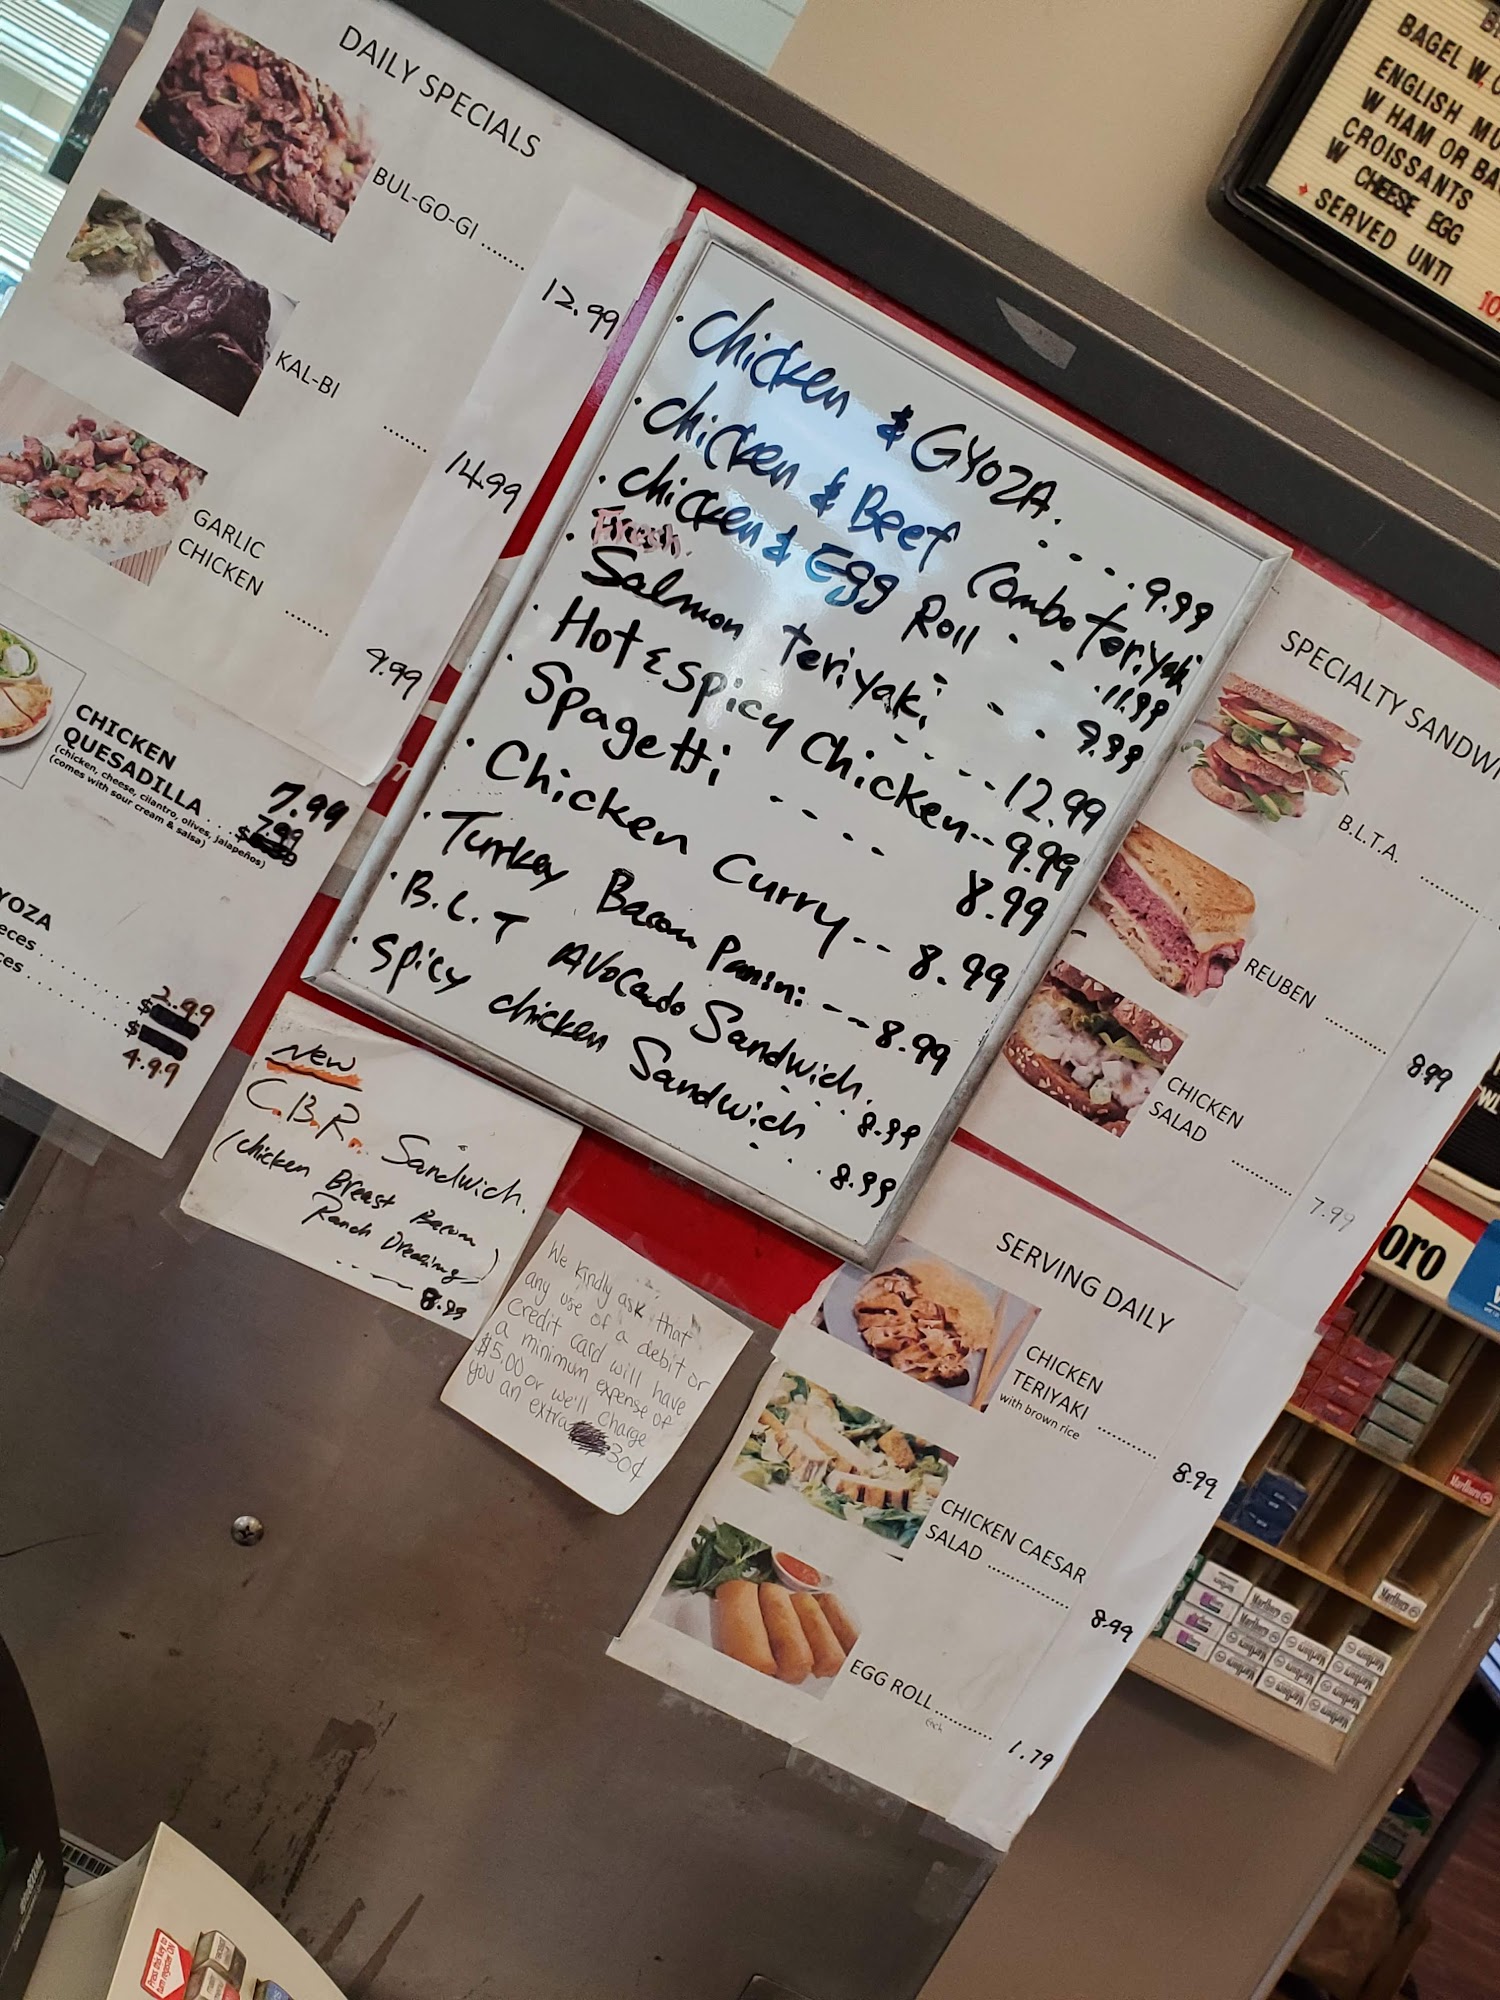 DAILY SPECIALS
BUL-GO-GI ....... 12.99
KAL-BI ....... 14.99
GARLIC
CHICKEN ....... 9.99
CHICKEN
QUESADILLA . . . $7.99
7.99
(chicken, cheese, cilantro, olives, jalapeños)
(comes with sour cream & salsa)
YOZA
eces . . . . . . . . $ 2.99
ces . . . . . . . . $
4.99
· Chicken & GYOZA. - - - - . 9.99
· Chicken & Beef Combo Teriyaki
. 11.99
· Chicken & Egg Roll - - - . 9.99
· Fresh.
Salmon Teriyaki - - - - - 12.99
· Hot & Spicy Chicken -- 9.99
· Spagetti - - - - 8.99
· Chicken Curry -- 8.99
· Turkey Bacon Panini -- 8.99
· B.L.T Avocado Sandwich.
8.99
· Spicy chicken Sandwich
. . . 8.99
New
C.B.R. Sandwich.
(Chicken Breast Bacon
Ranch Dressing)
. . - - 8.99
We kindly ask that
any use of a debit or
credit card will have
a minimum expense of
$5.00 or we'll charge
you an extra 30¢
BAGEL W, C
ENGLISH MU
W HAM OR BA
CROISSANTS
W CHEESE EGG
SERVED UNTI
10
SPECIALTY SANDWI
B.L.T.A. ..........
REUBEN .......... 8.99
CHICKEN
SALAD .......... 7.99
SERVING DAILY
CHICKEN
TERIYAKI .......... 8.99
with brown rice
CHICKEN CAESAR
SALAD .......... 8.99
EGG ROLL .......... 1.79
each
oro
Marlboro
Marlboro
Marlboro
Press this key to
turn register ON